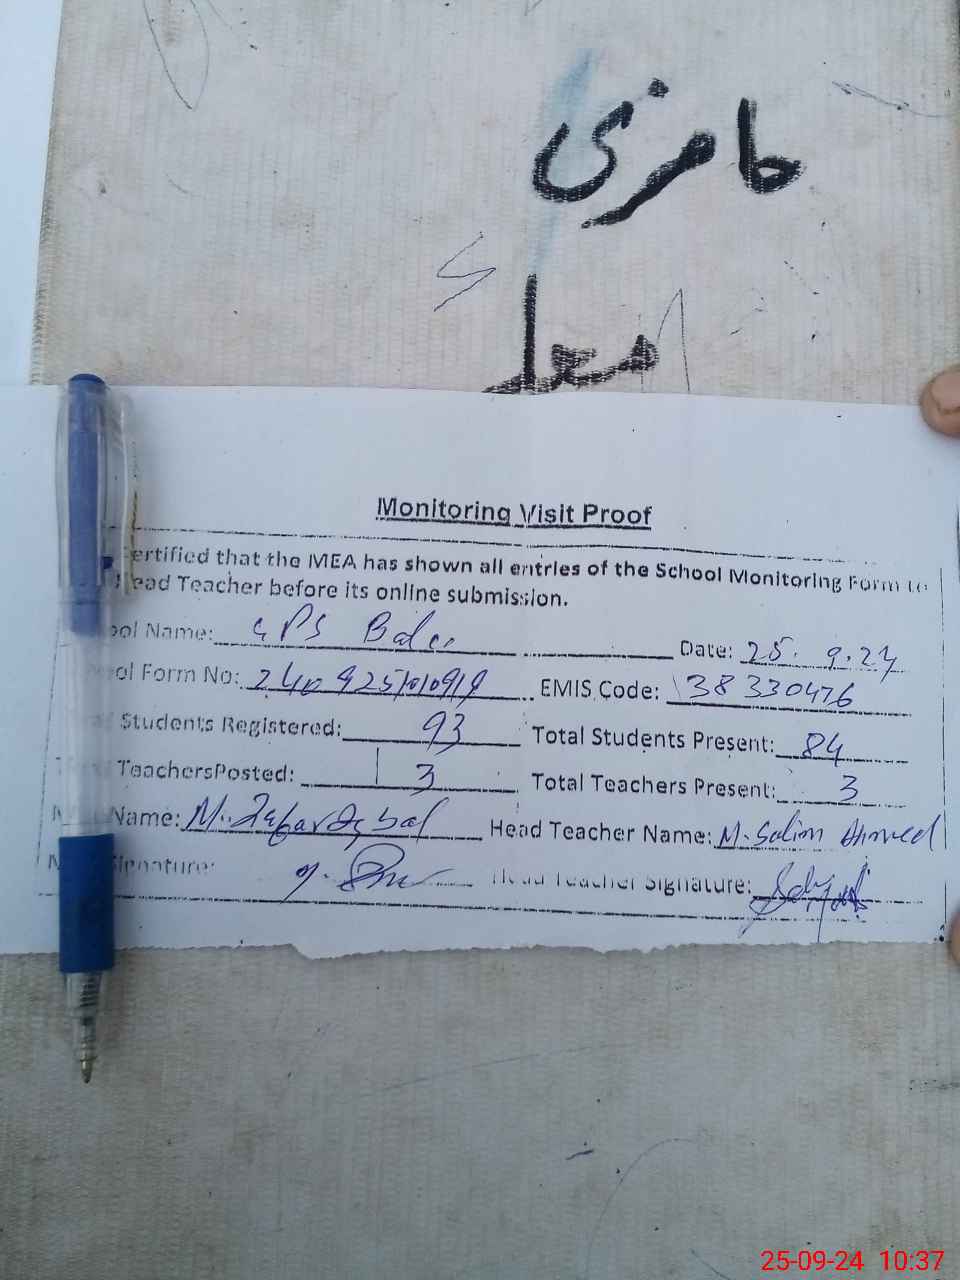 حاضری
معلم
Monitoring Visit Proof
ertified that the MEA has shown all entries of the School Monitoring Form to
Head Teacher before its online submission.
ool Name: GPS Date: 25. 9.24
ol Form No: EMIS Code: 38330476
Students Registered: 93 Total Students Present: 84
TeachersPosted: 3 Total Teachers Present: 3
Name: M. Zafar Iqbal Head Teacher Name: M. Salim Ahmed
Signature: Head Teacher Signature:
25-09-24 10:37